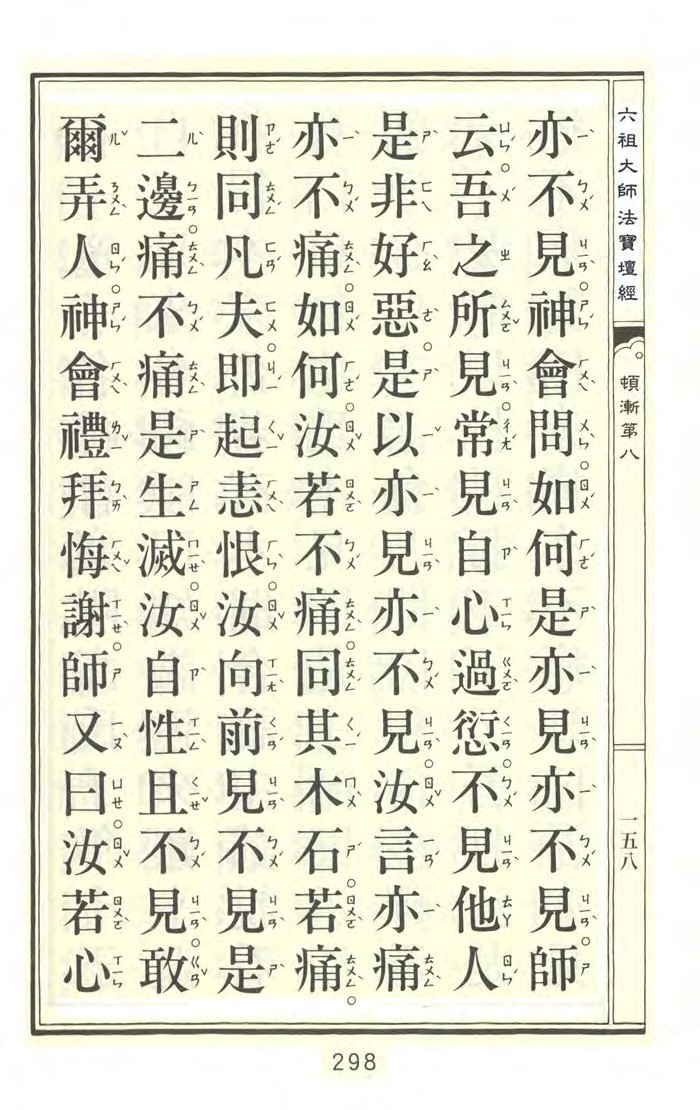 六祖大師法寶壇經
頓漸第八
一五八
亦不見。神會問。如何是亦見亦不見。師
云。吾之所見。常見自心過愆。不見他人
是非好惡。是以亦見亦不見。汝言亦痛
亦不痛。如何。汝若不痛。同其木石。若痛。
則同凡夫。即起恚恨。汝向前見不見是
二邊。痛不痛是生滅。汝自性且不見。敢
爾弄人。神會禮拜悔謝。師又曰。汝若心
298